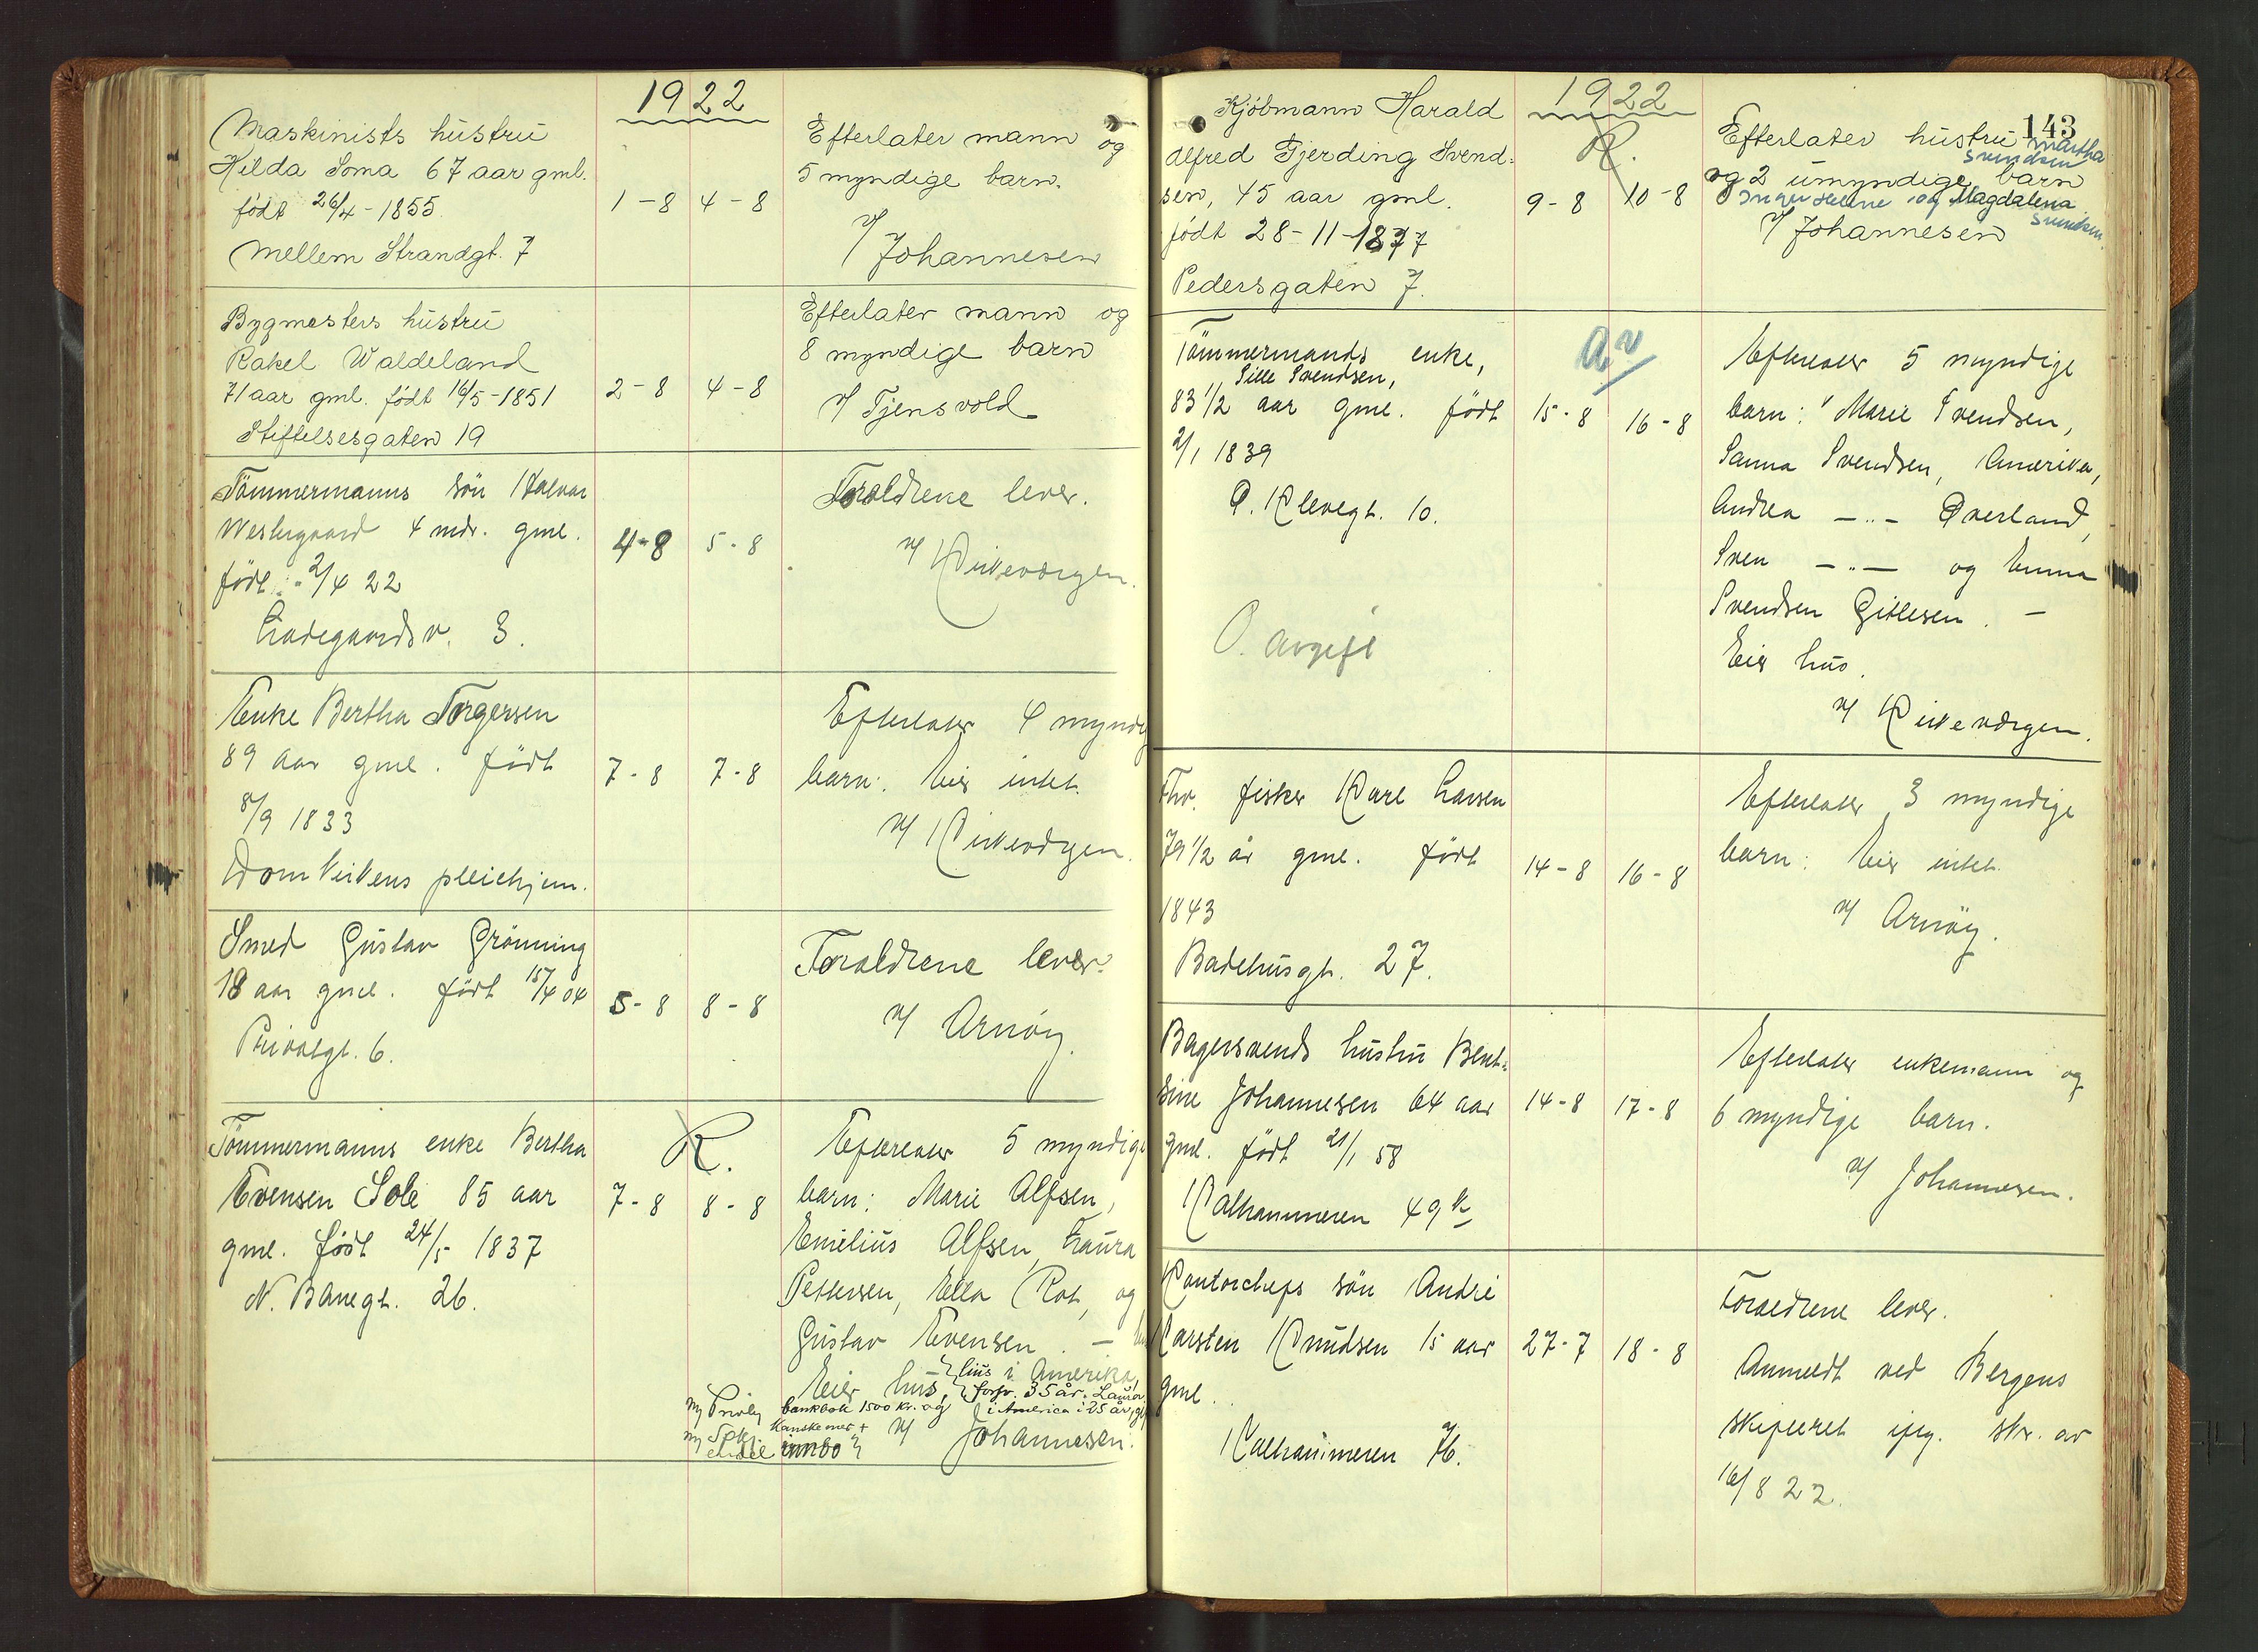 1922
Maskinists hustru
Hilda Soma 67 aar gml.
født 26/4-1855
Mellem Strandgt. 7
1-8 4-8
Efterlater mann og
5 myndige barn.
v/ Johannesen
Bygmesters hustru
Rakel Waldeland
71 aar gml. født 16/5-1851
Stiftelsesgaten 19
2-8 4-8
Efterlater mann og
8 myndige barn
v/ Tjensvold
Tömmermanns sön Halvar
Westergaard 4 mdr. gml.
født: 2/4 22
Ladegaardsv. 3.
4-8 5-8
Foraldrene lever.
v/ Kirkevergen.
Enke Bertha Torgersen
89 aar gml. født
8/9 1833
Domkirkens pleiehjem.
7-8 7-8
Efterlater 4 myndig
barn. Eier intet.
v/ Kirkevergen.
Smed Gustav Grönning
18 aar gml. født 15/4 04
Privatgt. 6.
5-8 8-8
Foraldrene lever.
v/ Arnöy.
Tömmermanns enke Bertha
Evensen Sole 85 aar
gml. født 24/5- 1837
N. Banegt. 26.
R.
7-8 8-8
Efterlater 5 myndige
barn: Marie Alfsen,
Emilius Alfsen, Laura
Pettersen, Ella Rot, og
Gustav Evensen. -
Eier hus, { hus i Amerika,
forsv. 35 år. Laura
bankbok 1500 kr. og i America i 25 år, gift
kanske mer +
innbo }
v/ Johannesen.
1922
143
Kjöbmann Harald
Alfred Gjerding Svend-
sen, 45 aar gml.
født 28-11-1877
Pedersgaten 7.
R.
9-8 10-8
Efterlater hustru Martha
Svendsen
og 2 umyndige barn
Inger Helene og Magdalena
Svendsen.
v/ Johannesen
Tömmermands enke,
Sille Svendsen,
83 1/2 aar gml. født
2/1 1839
Ö. Klevegt. 10.
O. avgift
av
15-8 16-8
Efterlater 5 myndige
barn: Marie Svendsen,
Sanna Svendsen, Amerika,
Andrea -"- Øverland,
Sven -"- og Emma
Svendsen Gitlesen. -
Eier hus.
v/ Kirkevergen.
Fhv. fisker Karl Larsen
79 1/2 år gml. født
1843
Badehusgt. 27.
14-8 16-8
Efterlater 3 myndige
barn: Eier intet.
v/ Arnöy.
Bagersvends hustru Bent-
sine Johannesen 64 aar
gml. født 21/1 58
Kalhammeren 49 b
14-8 17-8
Efterlater enkemann og
6 myndige barn.
v/ Johannesen.
Kontorchefs sön André
Karsten Knudsen 15 aar
gml.
Kalhammeren 76.
27-7 18-8
Foraldrene lever.
Anmeldt ved Bergens
skifteret iflg. skr. av
16/8 22.